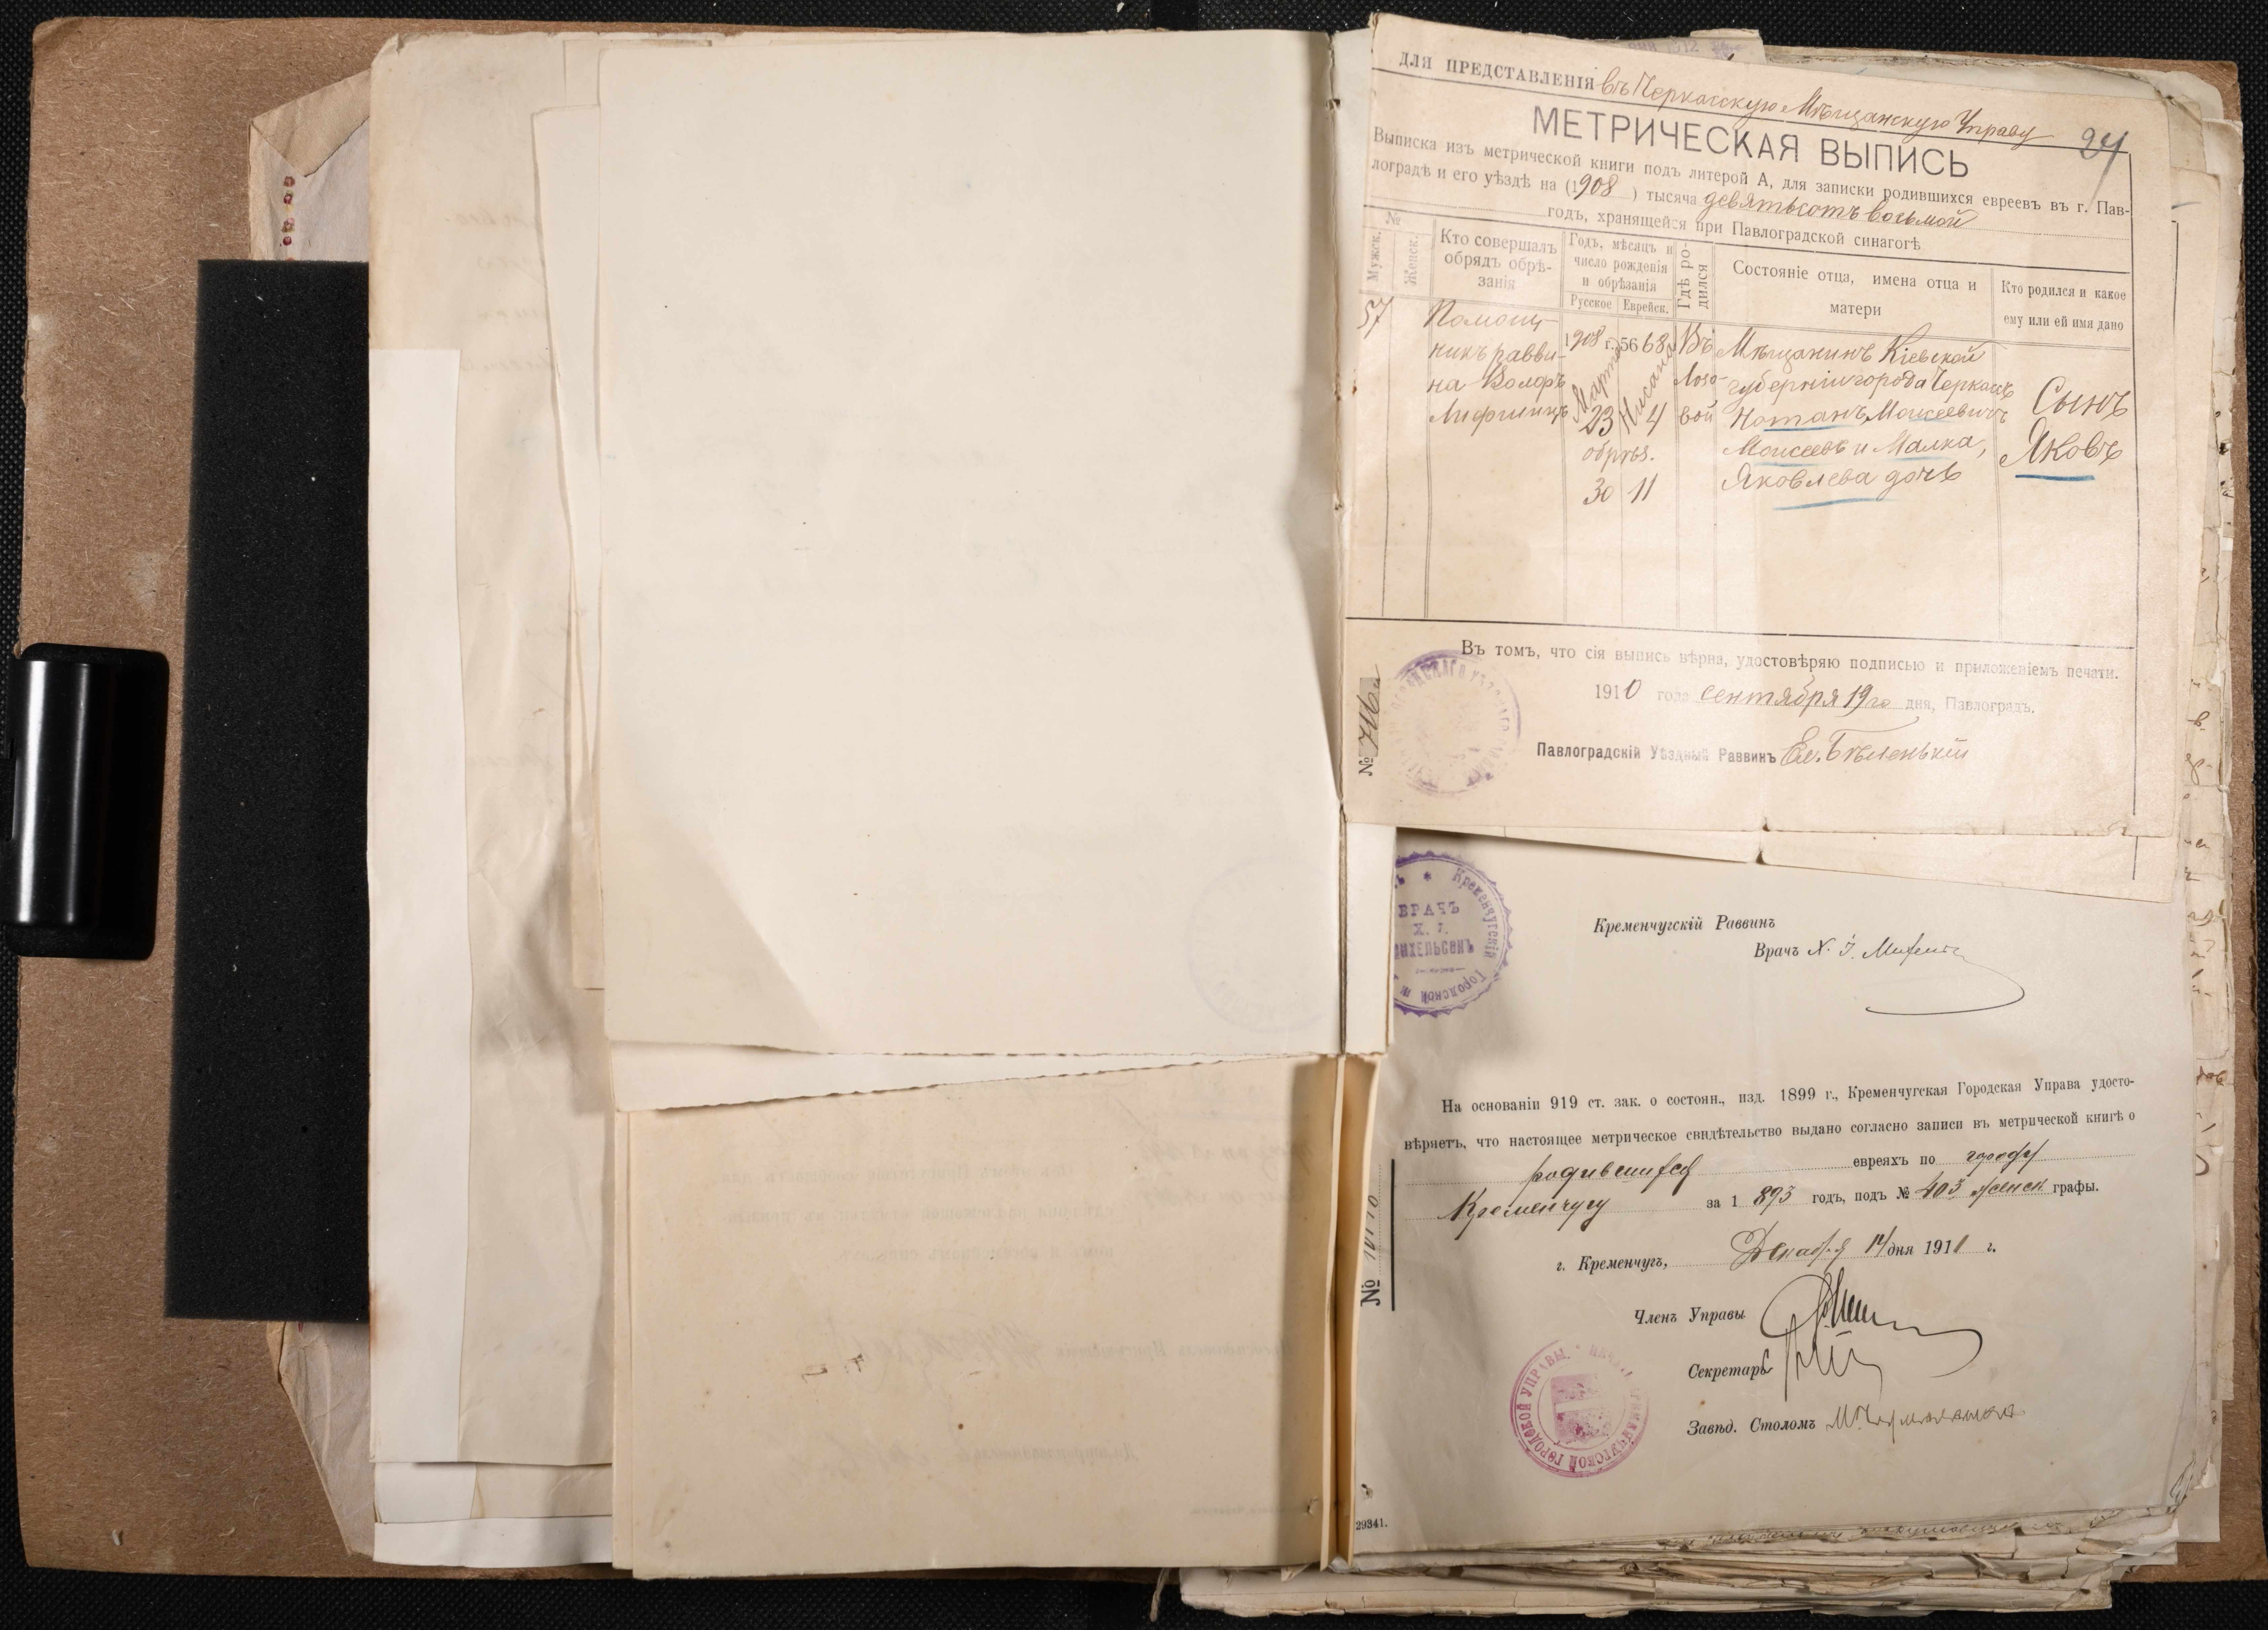 ДЛЯ ПРЕДСТАВЛЕНІЯ въ Черкасскую Мѣщанскую Управу
24
МЕТРИЧЕСКАЯ ВЫПИСЬ
Выписка изъ метрической книги подъ литерой А, для записки родившихся евреевъ въ г. Пав-
лоградѣ и его уѣздѣ на (1908) тысяча девятьсотъ восьмой
годъ, хранящейся при Павлоградской синагогѣ
№
Мужск.
Женск.
Кто совершалъ
обрядъ обрѣ-
занія
Годъ, мѣсяцъ и
число рожденія
и обрѣзанія
Русское
Еврейск.
Гдѣ ро-
дился
Состояніе отца, имена отца и
матери
Кто родился и какое
ему или ей имя дано
57
Помощ-
никъ равви-
на Вольфъ
Лифшицъ
1908 г.
Марта
23
обрѣз.
30
5668
Нисана
4
11
Въ
Лозо-
вой
Мѣщанинъ Кіевской
губерніи города Черкассъ
Нотанъ, Моисеевичъ
Моисеевъ и Малка,
Яковлева дочь
Сынъ
Яковъ
Въ томъ, что сія выпись вѣрна, удостовѣряю подписью и приложеніемъ печати.
1910 года сентября 19го дня, Павлоградъ.
№ 716
Павлоградскій Уѣздный Раввинъ Ел. Бѣленькій
* Кременчугскій Городской
ВРАЧЪ
Х. І.
МИХЕЛЬСОНЪ
Кременчугскій Раввинъ
Врачъ Х. І.
На основаніи 919 ст. зак. о состоян., изд. 1899 г., Кременчугская Городская Управа удосто-
вѣряетъ, что настоящее метрическое свидѣтельство выдано согласно записи въ метрической книгѣ о
родившихся евреяхъ по городу
Кременчугу за 1893 годъ, подъ № 403 женск графы.
г. Кременчугъ, Декабря 14 дня 1911 г.
№
Членъ Управы
Секретарь
Завѣд. Столомъ
ГОРОДСКОЙ УПРАВЫ.
29341.